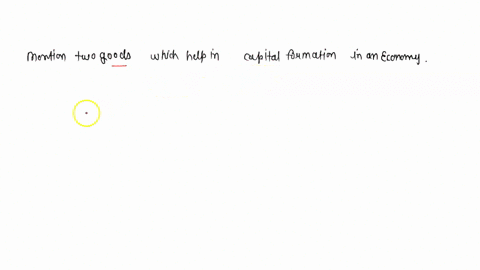 Mention two goods which help in capital formation in an Economy.